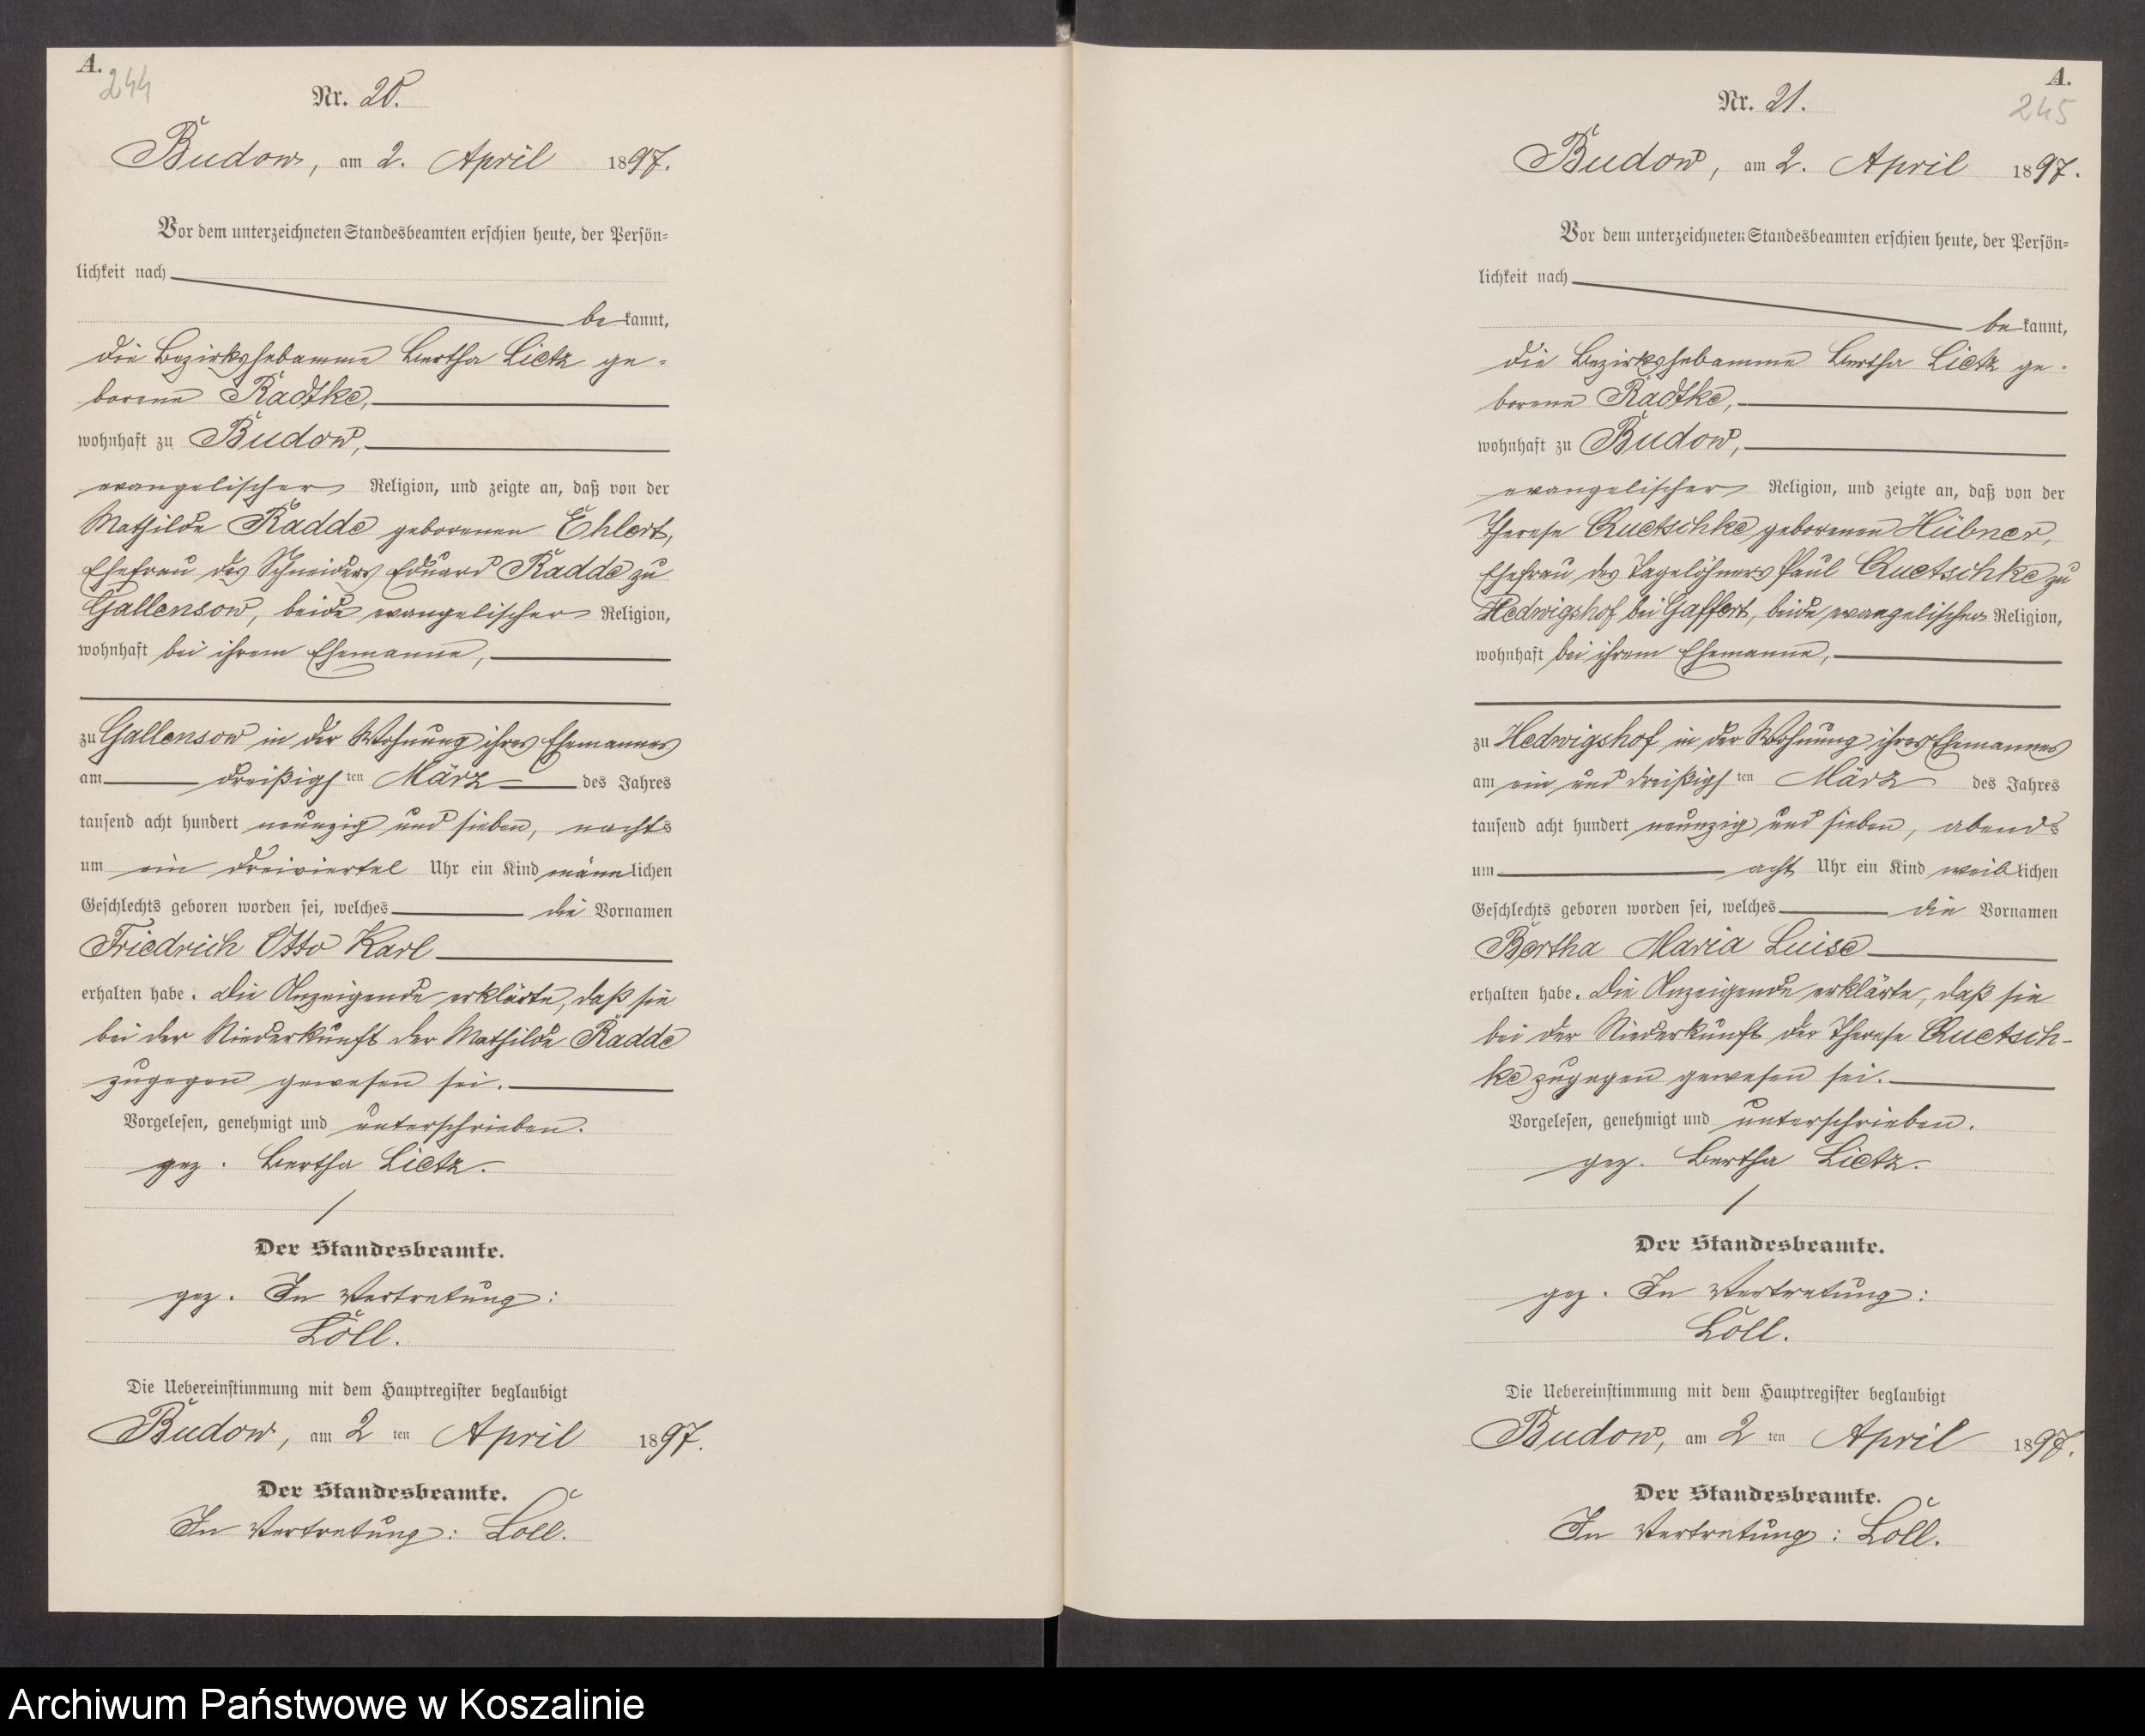 A.
244
Nr. 20.
Budow, am 2. April 1897.
Vor dem unterzeichneten Standesbeamten erschien heute, der Persön=
lichkeit nach
be kannt,
die Bezirkshebamme Bertha Lietz ge=
borene Radtke,
wohnhaft zu Budow,
evangelischer Religion, und zeigte an, daß von der
Mathilde Radde geborenen Ehlert,
Ehefrau des Schneiders Eduard Radde zu
Gallensow, beide evangelischer Religion,
wohnhaft bei ihrem Ehemanne,
zu Gallensow in der Wohnung ihres Ehemannes
am dreißigs ten März des Jahres
tausend acht hundert neunzig und sieben, nachts
um ein dreiviertel Uhr ein Kind männ lichen
Geschlechts geboren worden sei, welches die Vornamen
Friedrich Otto Karl
erhalten habe. Die Anzeigende erklärte, daß sie
bei der Niederkunft der Mathilde Radde
zugegen gewesen sei.
Vorgelesen, genehmigt und unterschrieben.
gez. Bertha Lietz.
Der Standesbeamte.
gez. In Vertretung:
Löll.
Die Uebereinstimmung mit dem Hauptregister beglaubigt
Budow, am 2 ten April 1897.
Der Standesbeamte.
In Vertretung: Löll.
A.
245
Nr. 21.
Budow, am 2. April 1897.
Vor dem unterzeichneten Standesbeamten erschien heute, der Persön=
lichkeit nach
be kannt,
die Bezirkshebamme Bertha Lietz ge=
borene Radtke,
wohnhaft zu Budow,
evangelischer Religion, und zeigte an, daß von der
Therese Quetschke geborenen Hübner,
Ehefrau des Tagelöhners Paul Quetschke zu
Hedwigshof bei Gaffert, beide evangelischer Religion,
wohnhaft bei ihrem Ehemanne,
zu Hedwigshof in der Wohnung ihres Ehemannes
am ein und dreißigs ten März des Jahres
tausend acht hundert neunzig und sieben, abends
um acht Uhr ein Kind weib lichen
Geschlechts geboren worden sei, welches die Vornamen
Bertha Maria Luise
erhalten habe. Die Anzeigende erklärte, daß sie
bei der Niederkunft der Therese Quetsch-
ke zugegen gewesen sei.
Vorgelesen, genehmigt und unterschrieben.
gez. Bertha Lietz.
Der Standesbeamte.
gez. In Vertretung:
Löll.
Die Uebereinstimmung mit dem Hauptregister beglaubigt
Budow, am 2 ten April 1897.
Der Standesbeamte.
In Vertretung: Löll.
Archiwum Państwowe w Koszalinie